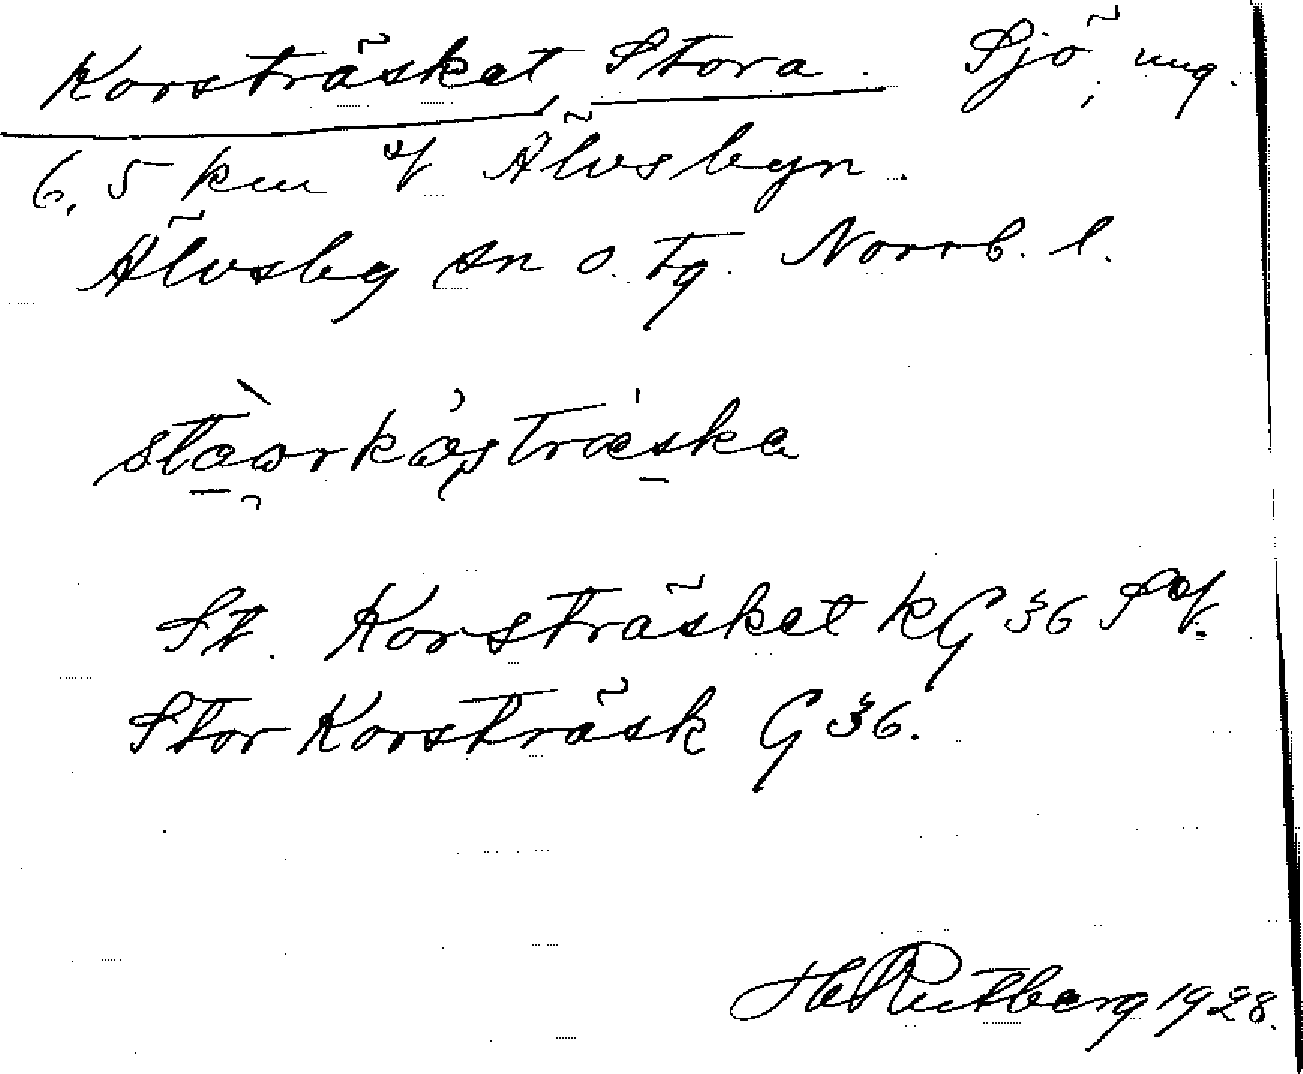 Korsträsket, Stora. Sjö, ung.
6,5 km Älvsbyn.
Älvsby sn o. tg. Norrb. l.
St. Korsträsket kG 36
Stor Korsträsk G 36.
H Rutberg 1928.